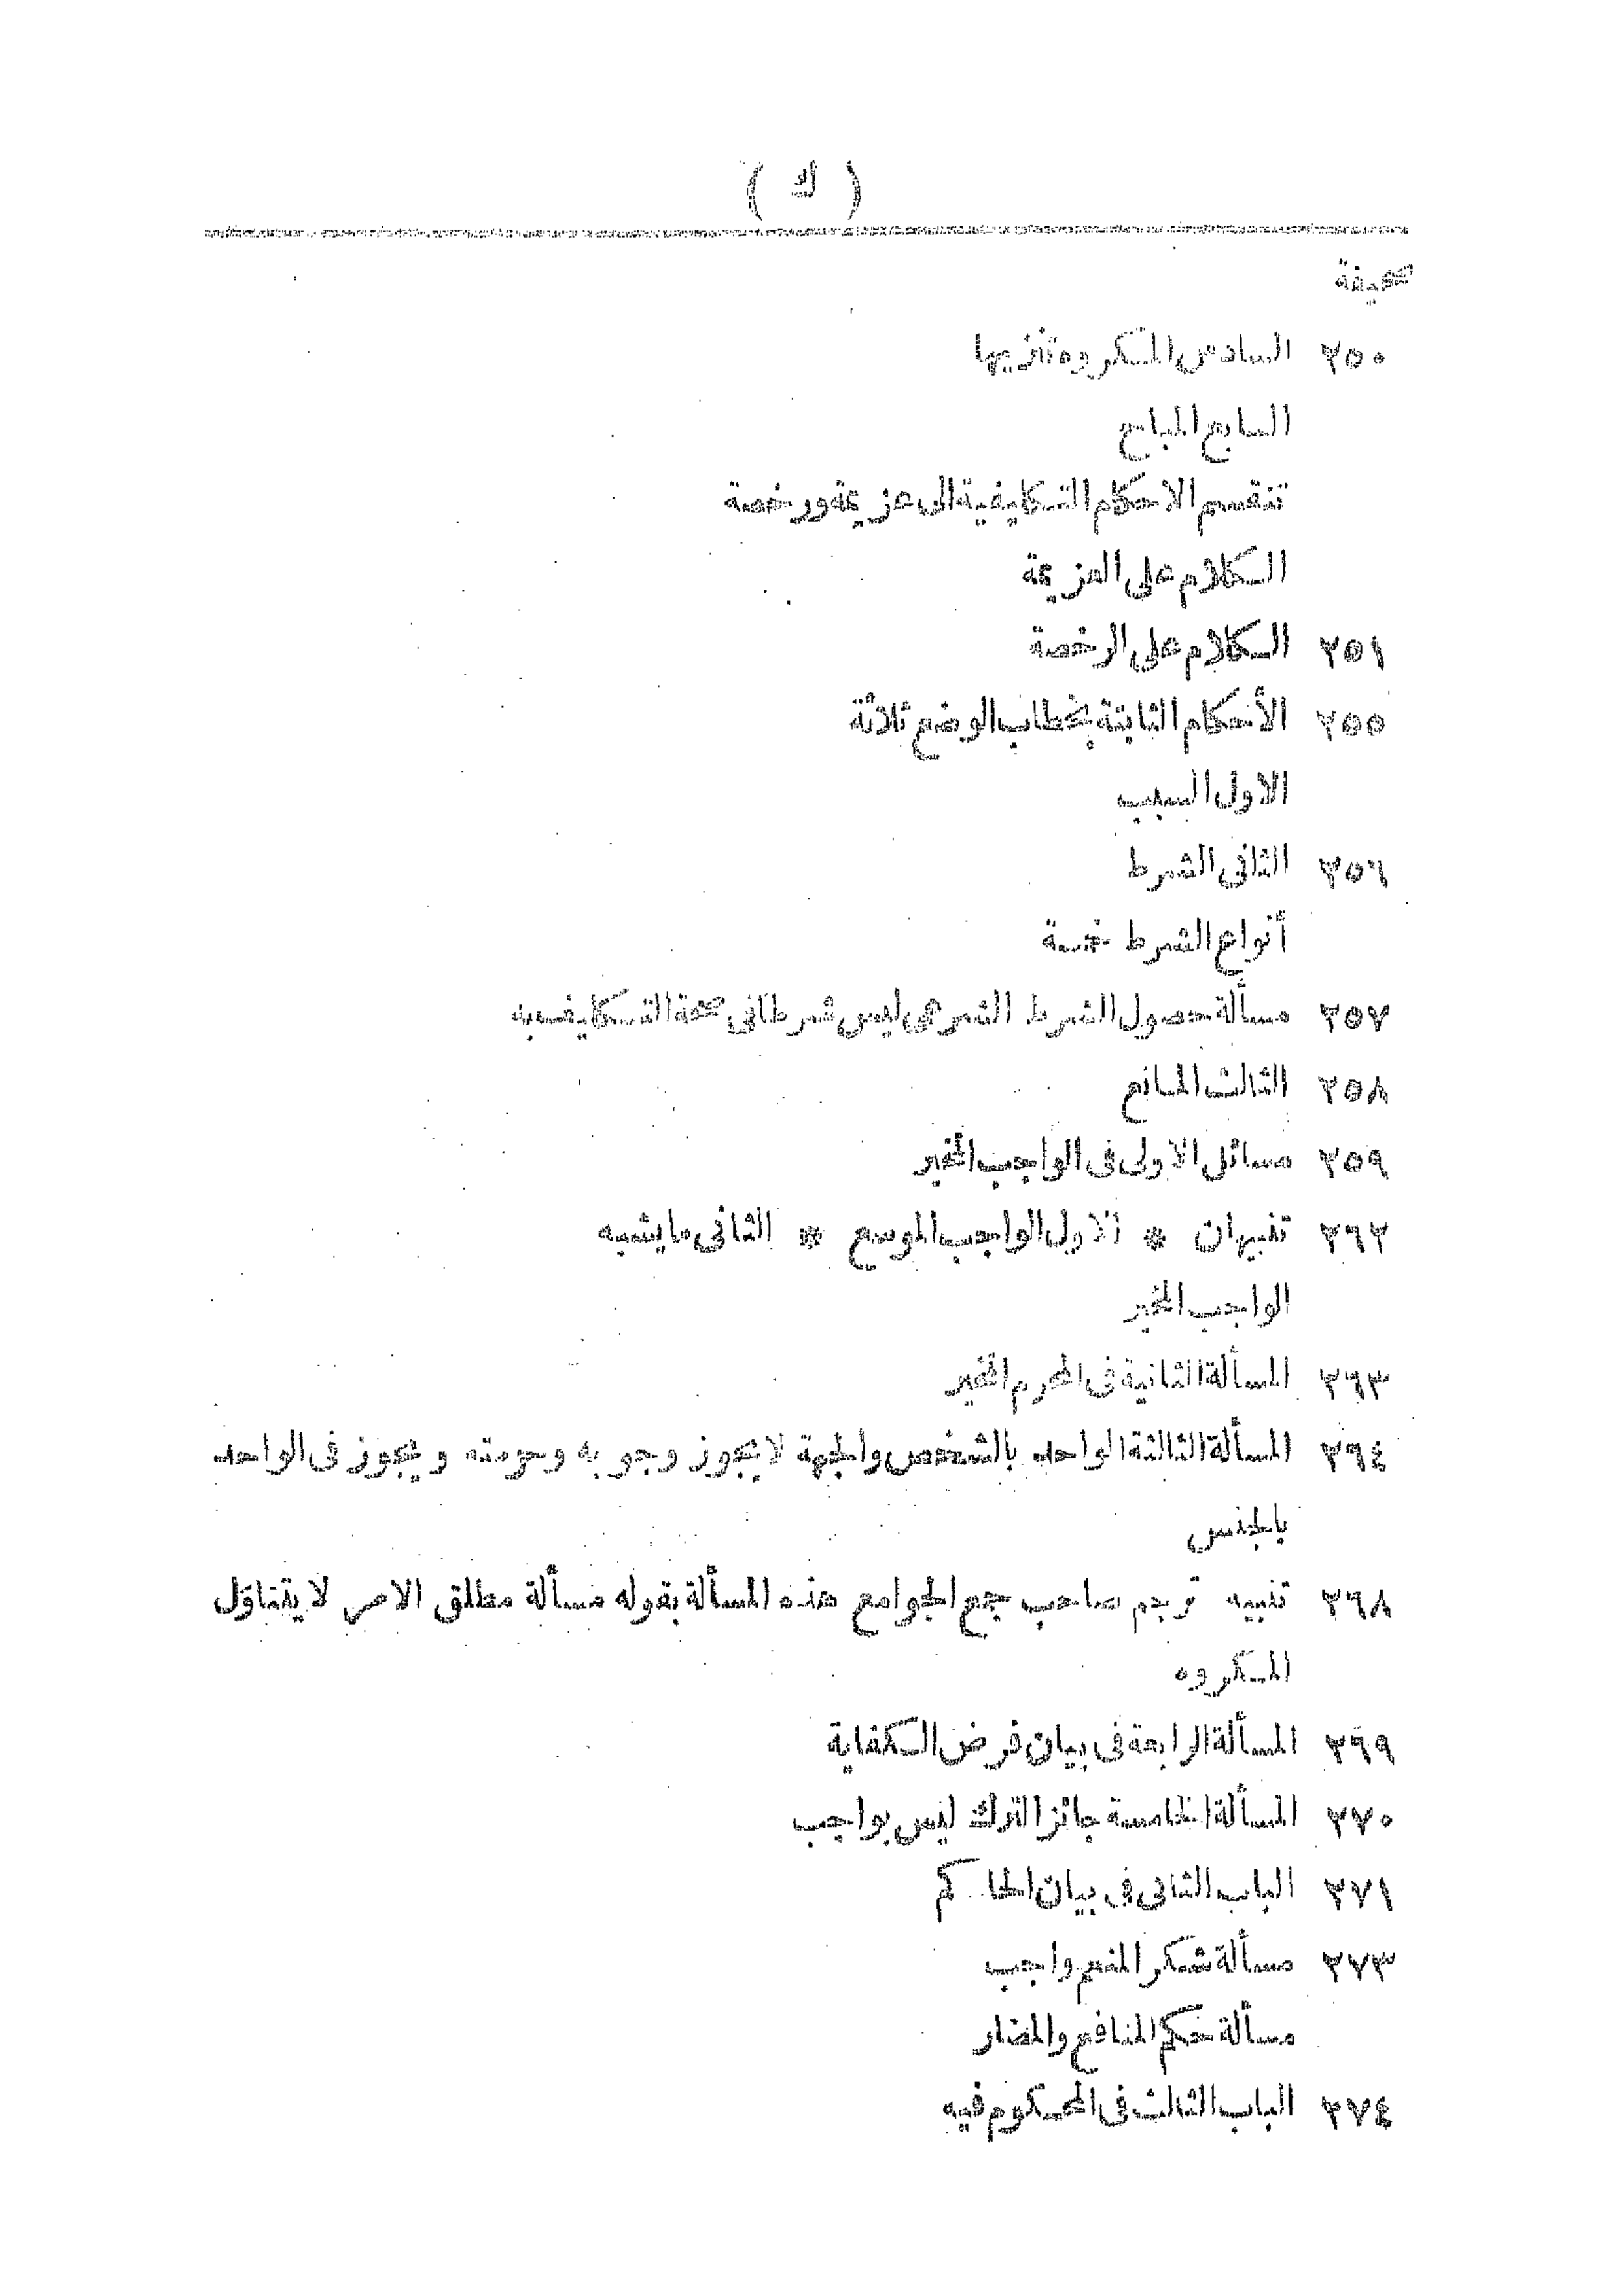 ( ك )
صحيفة
٢٥٠ السادس المكروه تنزيها
السابع المباح
تنقسم الاحكام التكليفية الى عزيمة ورخصة
الكلام على العزيمة
٢٥١ الكلام على الرخصة
٢٥٥ الأحكام الثابتة بخطاب الوضع ثلاثة
الاول السبب
٢٥٦ الثانى الشرط
أنواع الشرط خمسة
٢٥٧ مسألة حصول الشرط الشرعى ليس شرطا فى صحة التكليف به
٢٥٨ الثالث المانع
٢٥٩ مسائل الاولى فى الواجب المخير
٢٦٢ تنبيهان * الاول الواجب الموسع * الثانى ما يشبه
الواجب المخير
٢٦٣ المسألة الثانية فى المحرم المخير
٢٦٤ المسألة الثالثة الواحد بالشخص والجهة لا يجوز وجوبه وحرمته ويجوز فى الواحد
بالجنس
٢٦٨ تنبيه ترجم صاحب جمع الجوامع هذه المسألة بقوله مسألة مطلق الامر لا يتناول
المكروه
٢٦٩ المسألة الرابعة فى بيان فرض الكفاية
٢٧٠ المسألة الخامسة جائز الترك ليس بواجب
٢٧١ الباب الثانى فى بيان الحاكم
٢٧٣ مسألة شكر المنعم واجب
مسألة حكم المنافع والمضار
٢٧٤ الباب الثالث فى المحكوم فيه